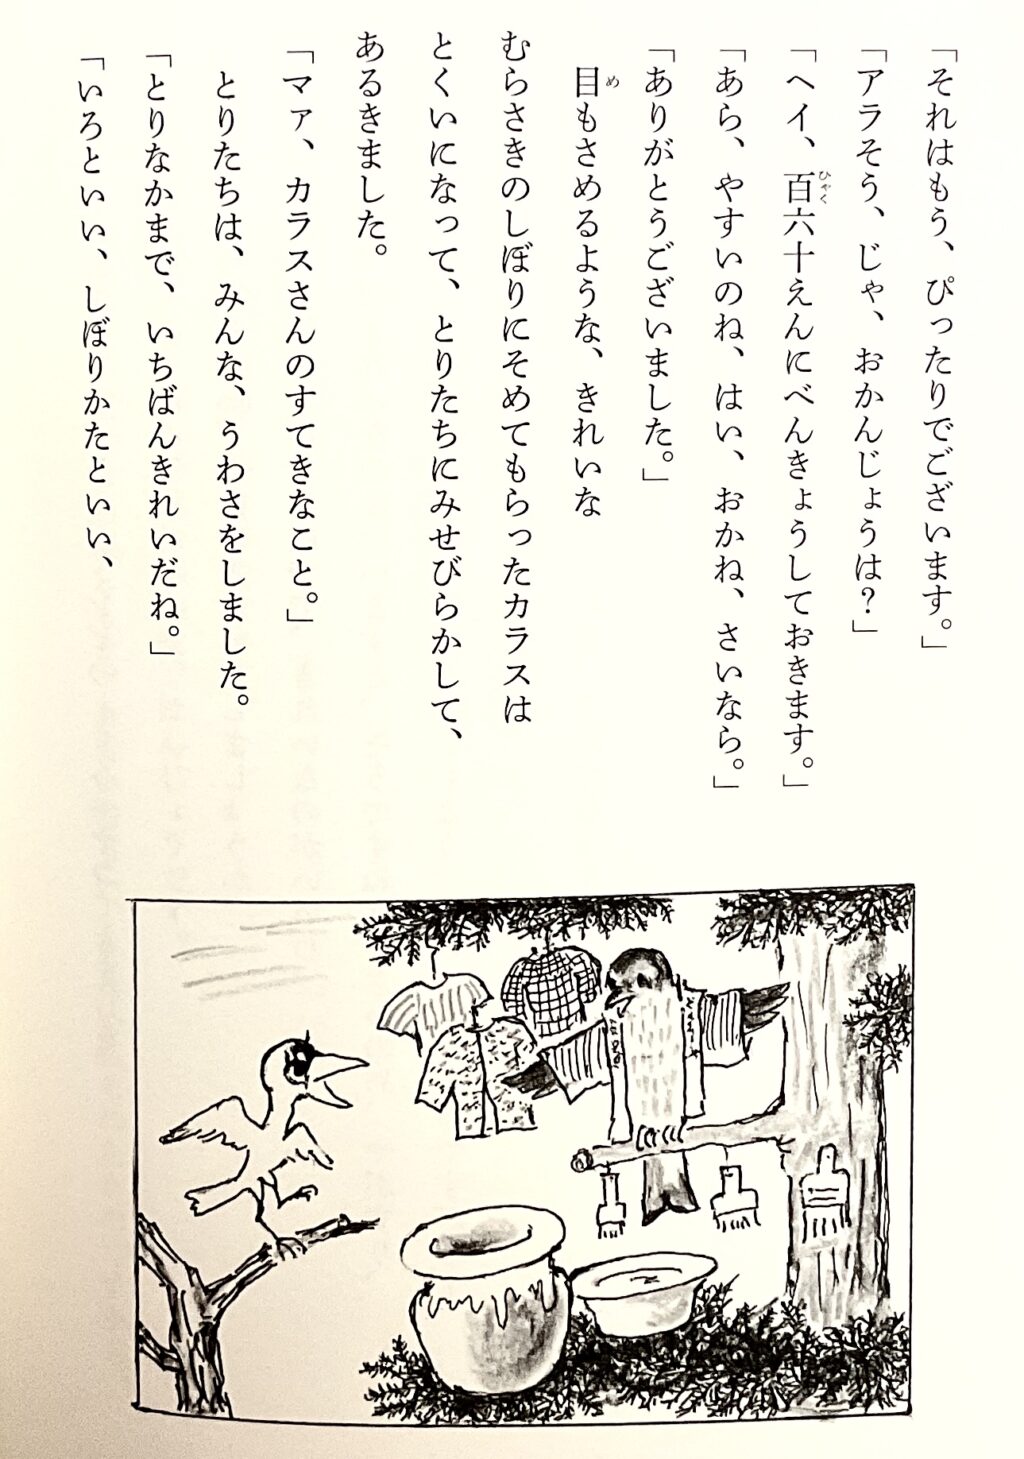 「それはもう、ぴったりでございます。」
「アラそう、じゃ、おかんじょうは？」
「ヘイ、百六十えんにべんきょうしておきます。」
「あら、やすいのね、はい、おかね、さいなら。」
「ありがとうございました。」
目もさめるような、きれいな
むらさきのしぼりにそめてもらったカラスは
とくいになって、とりたちにみせびらかして、
あるきました。
「マァ、カラスさんのすてきなこと。」
とりたちは、みんな、うわさをしました。
「とりなかまで、いちばんきれいだね。」
「いろといい、しぼりかたといい、